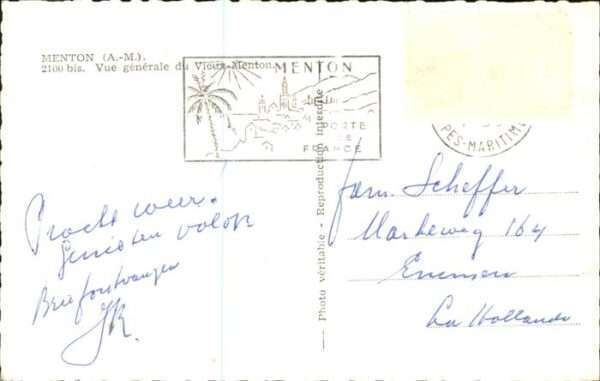 MENTON (A.-M.).
2100 bis. Vue générale du Vieux-Menton.
MENTON
PORTE
DE
FRANCE
PES-MARITIM
Photo véritable - Reproduction interdite
Pracht weer.
Genieten volop
Brief ontvangen
JR.
Fam. Scheffer
Markeweg 164
Emmen
La Hollande